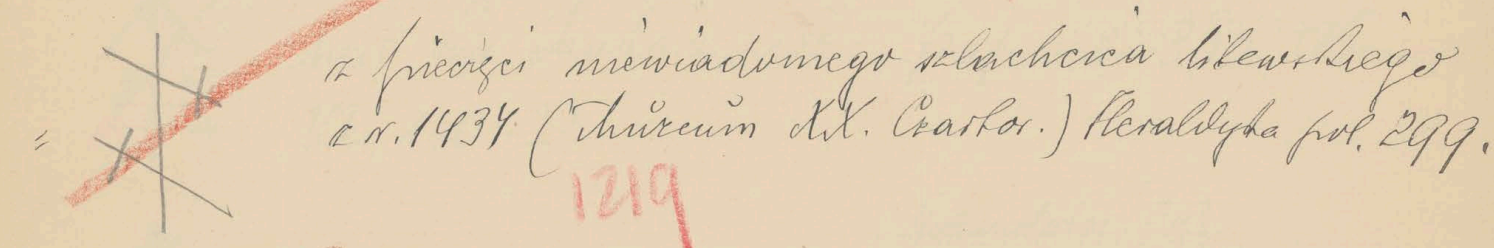 z pieczęci niewiadomego szlachcica litewskiego
z r. 1434 (Muzeum XX. Czartor.) Heraldyka pol. 299.
1219